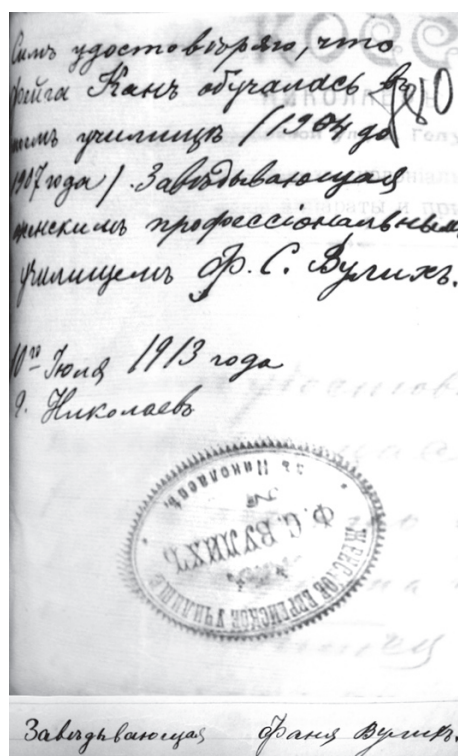 Симъ удостовѣряю, что
Фейга Канъ обучалась въ
училищѣ /1904 до
1907 года/. Завѣдывающая
женскимъ профессіональнымъ
училищемъ Ф. С. Вулихъ.
10го Іюля 1913 года
г. Николаевъ
ЖЕНСКОЕ ЕВРЕЙСКОЕ УЧИЛИЩЕ
Ф. С. ВУЛИХЪ
въ Николаевѣ
Завѣдывающая Фаня Вулихъ.